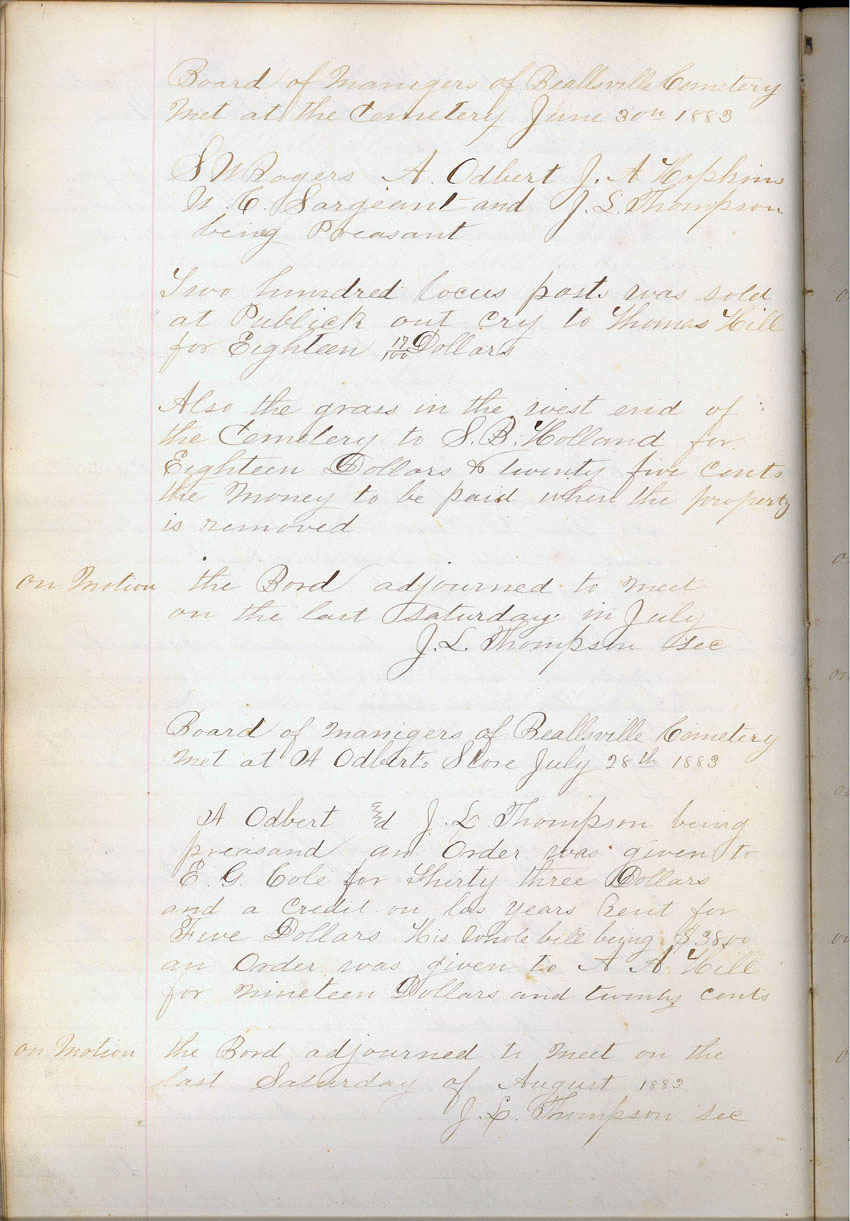 Board of Manigers of Beallsville Cemetery
Met at the Cemetery June 30th 1883
S W Rogers A. Odbert J. A Hopkins
N. C. Sargeant and J. L. Thompson
being Preasant
Two hundred locus posts was sold
at Publick out cry to Thomas Hill
for Eighteen 17/100 Dollars
Also the grass in the west end of
the Cemetery to S. B. Holland for
Eighteen Dollars & twenty five cents
the Money to be paid when the property
is removed
on Motion the Bord adjourned to Meet
on the last Saturday in July
J. L. Thompson Sec
Board of Manigers of Beallsville Cemetery
Met at A Odberts Store July 28th 1883
A Odbert and J. L Thompson being
preasand an Order was given to
E. G. Cole for Thirty three Dollars
and a Credit on las years Rent for
Five Dollars His whole bill being $38.00
an Order was given to A A Hill
for Nineteen Dollars and twenty cents
on Motion the Bord adjourned to Meet on the
last Saturday of August 1883
J. L. Thompson sec